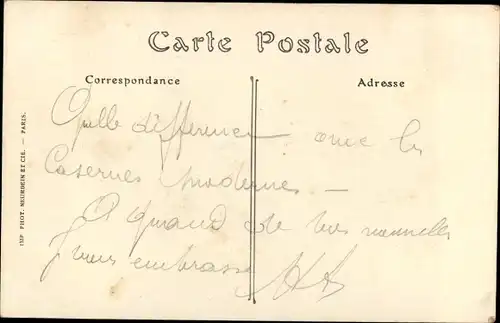 Carte Postale
Correspondance
Adresse
Quelle différence avec les
Casernes modernes —
A quand de vos nouvelles
Je vous embrasse
IMP. PHOT. NEURDEIN ET CIE. — PARIS.